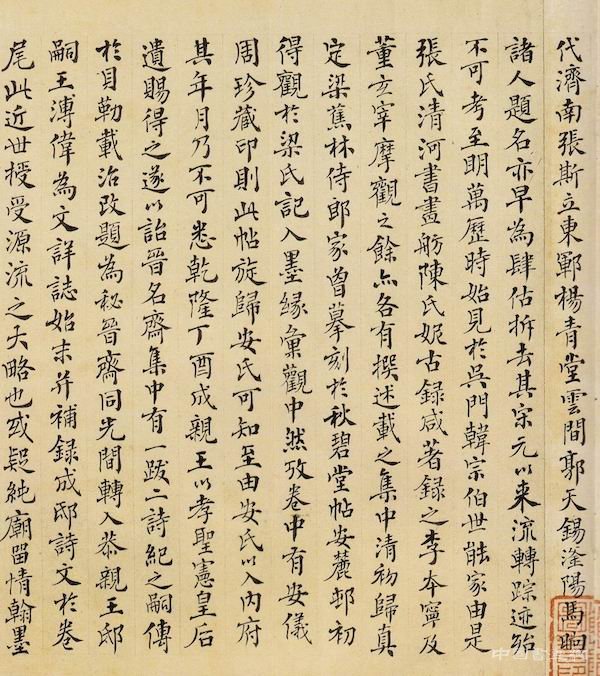 代濟南張斯立東鄆楊青堂雲間郭天錫滏陽馬昫
諸人題名亦早為肆估拆去其宗元以来流轉踪迹殆
不可考至明萬歷時始見於吳門韓宗伯世能家由是
張氏清河書畫舫陳氏妮古録咸著録之李本寧及
董玄宰摩觀之餘亦各有撰述載之集中清初歸真
定梁蕉林侍郎家曾摹刻於秋碧堂帖安麓邨初
得觀於梁氏記入墨緣彙觀中然攷卷中有安儀
周珍藏印則此帖旋歸安氏可知至由安氏以入內府
其年月乃不可悉乾隆丁酉成親王以孝聖憲皇后
遺賜得之遂以詒晉名齋集中有一跋二詩紀之嗣傳
於貝勒載治改題為秘晉齋同光間轉入恭親王邸
嗣王溥偉為文詳誌始末并補録成邸詩文於卷
尾此近世授受源流之大略也或疑純廟留情翰墨